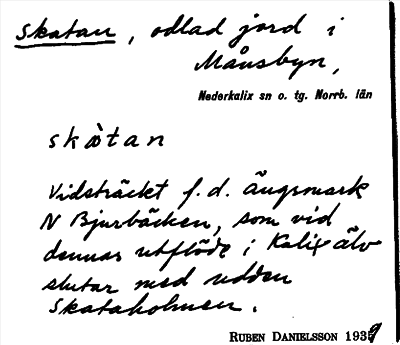 Skatan, odlad jord i
Månsbyn,
Nederkalix sn o. tg. Norrb. län
skàtan
Vidsträckt f.d. ängsmark
N Bjurbäcken, som vid
dennas utflöde i Kalix älv
slutar med udden
Skataholmen.
RUBEN DANIELSSON 1939